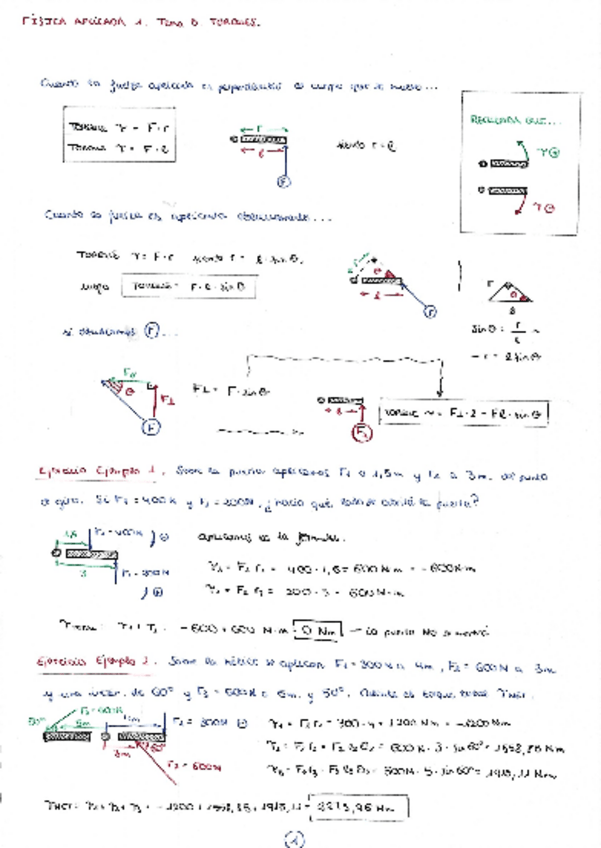 FÍSICA APLICADA 1. Tema 0. TORQUES.
Cuando la fuerza aplicada es perpendicular al cuerpo que se mueve...
TORQUE τ = F·r
TORQUE τ = F·l
r
l
F
siendo r=l
RECUERDA QUE...
τ⊕
τ⊖
Cuando la fuerza es aplicada oblicuamente...
TORQUE τ = F·r siendo r = l·sinθ.
luego TORQUE = F·l·sinθ
r
θ
l
F
r
θ
l
sinθ = r/l →
→ r = l sinθ
si F...
F//
θ
F⊥
F
F⊥ = F·sinθ
l
F⊥
TORQUE τ = F⊥·l = Fl·sinθ
Ejercicio Ejemplo 1. Sobre la puerta aplicamos F1 a 1,5m y F2 a 3m. del punto
de giro. Si F1 = 400N y F2 = 200N, ¿hacia qué lado se abrirá la puerta?
1,5
F1 = 400N
⊖
3
F2 = 200N
⊕
aplicamos la fórmula.
τ1 = F1 r1 = 400·1,5 = 600 N·m = -600 N·m
τ2 = F2 r2 = 200·3 = 600 N·m
τTOTAL = τ1+τ2 = -600+600 N·m = 0 Nm → la puerta NO se moverá
Ejercicio Ejemplo 2. Sobre la se aplican F1=300N a 4m, F2=600N a 3m
y una de 60° y F3=500N a 5m. y 50°. Calcula el torque total TNET.
50°
5m
4m
F1 = 300N ⊖
3m
60°
F2 = 600N
τ1 = F1 r1 = 300·4 = 1200 Nm = -1200 Nm
τ2 = F2 r2 = F2 l2 = 600·3·sin60° = 1558,85 Nm
TNET = τ1+τ2+τ3 = -1200+1558,85+1915,11 =
1